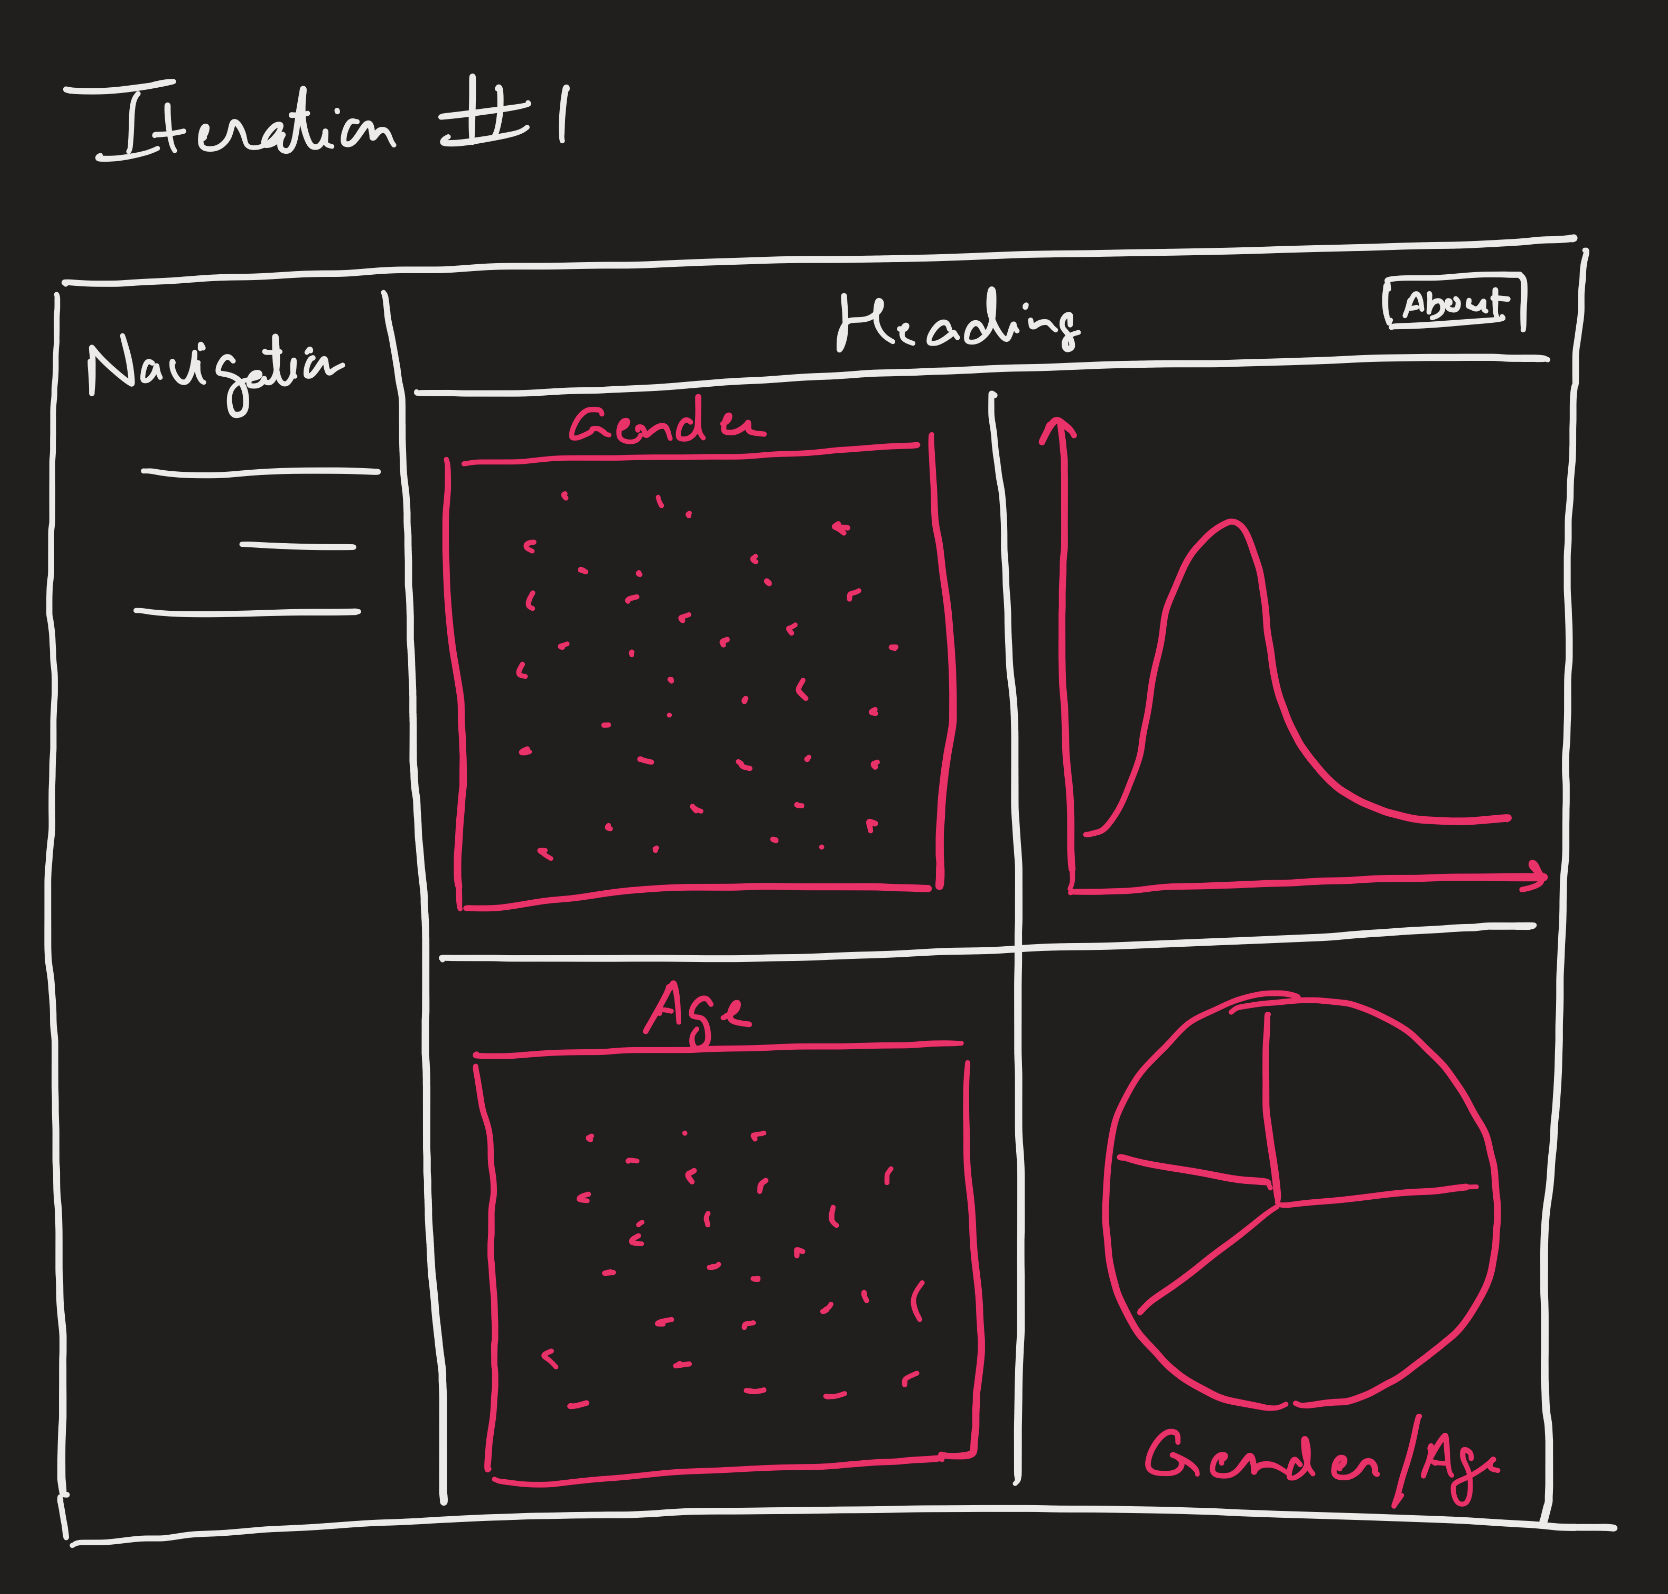 Iteration #1
Navigation
Heading
About
Gender
Age
Gender/Age